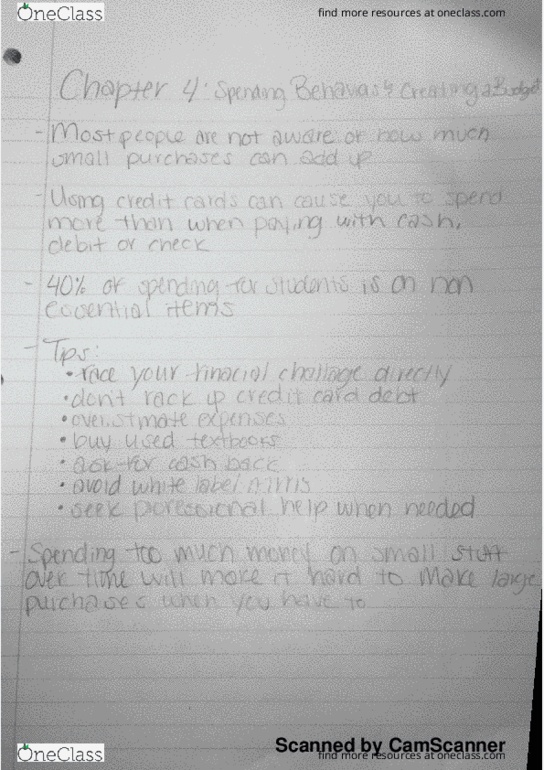 OneClass
find more resources at oneclass.com
Chapter 4: Spending Behaviors & Creating a Budget
- Most people are not aware of how much
small purchases can add up
- Using credit cards can cause you to spend
more than when paying with cash,
debit or check
- 40% of spending for students is on non
essential items
- Tips:
• face your finacial challage directly
• don't rack up credit card debt
• overestmate expenses
• buy used textbooks
• ask for cash back
• avoid white label ATMs
• seek professional help when needed
- Spending too much money on small stuff
over time will make it hard to make large
purchases when you have to
Scanned by CamScanner
OneClass
find more resources at oneclass.com